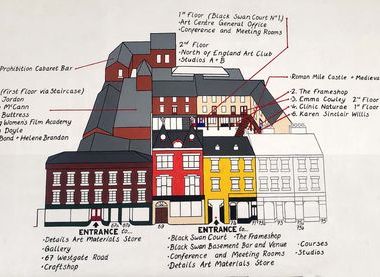 1st Floor (Black Swan Court Nº1)
·Art Centre General Office
·Conference and Meeting Rooms
2nd Floor
·North of England Art Club
·Studios A + B
Prohibition Cabaret Bar
(First Floor via Staircase)
Jordan
McCann
Buttress
Women's Film Academy
Doyle
Bond + Helene Brandon
·Roman Mile Castle + Mediev
2. The Frameshop
3. Emma Cowley 2nd Floor
4. Clinic Naturae 1st Floor
6. Karen Sinclair Willis
69
71
75
ENTRANCE to...
·Details Art Materials Store
·Gallery
·67 Westgate Road
·Craftshop
ENTRANCE to...
·Black Swan Court ·The Frameshop
·Black Swan Basement Bar and Venue
·Conference and Meeting Rooms
·Details Art Materials Store
·Courses
·Studios